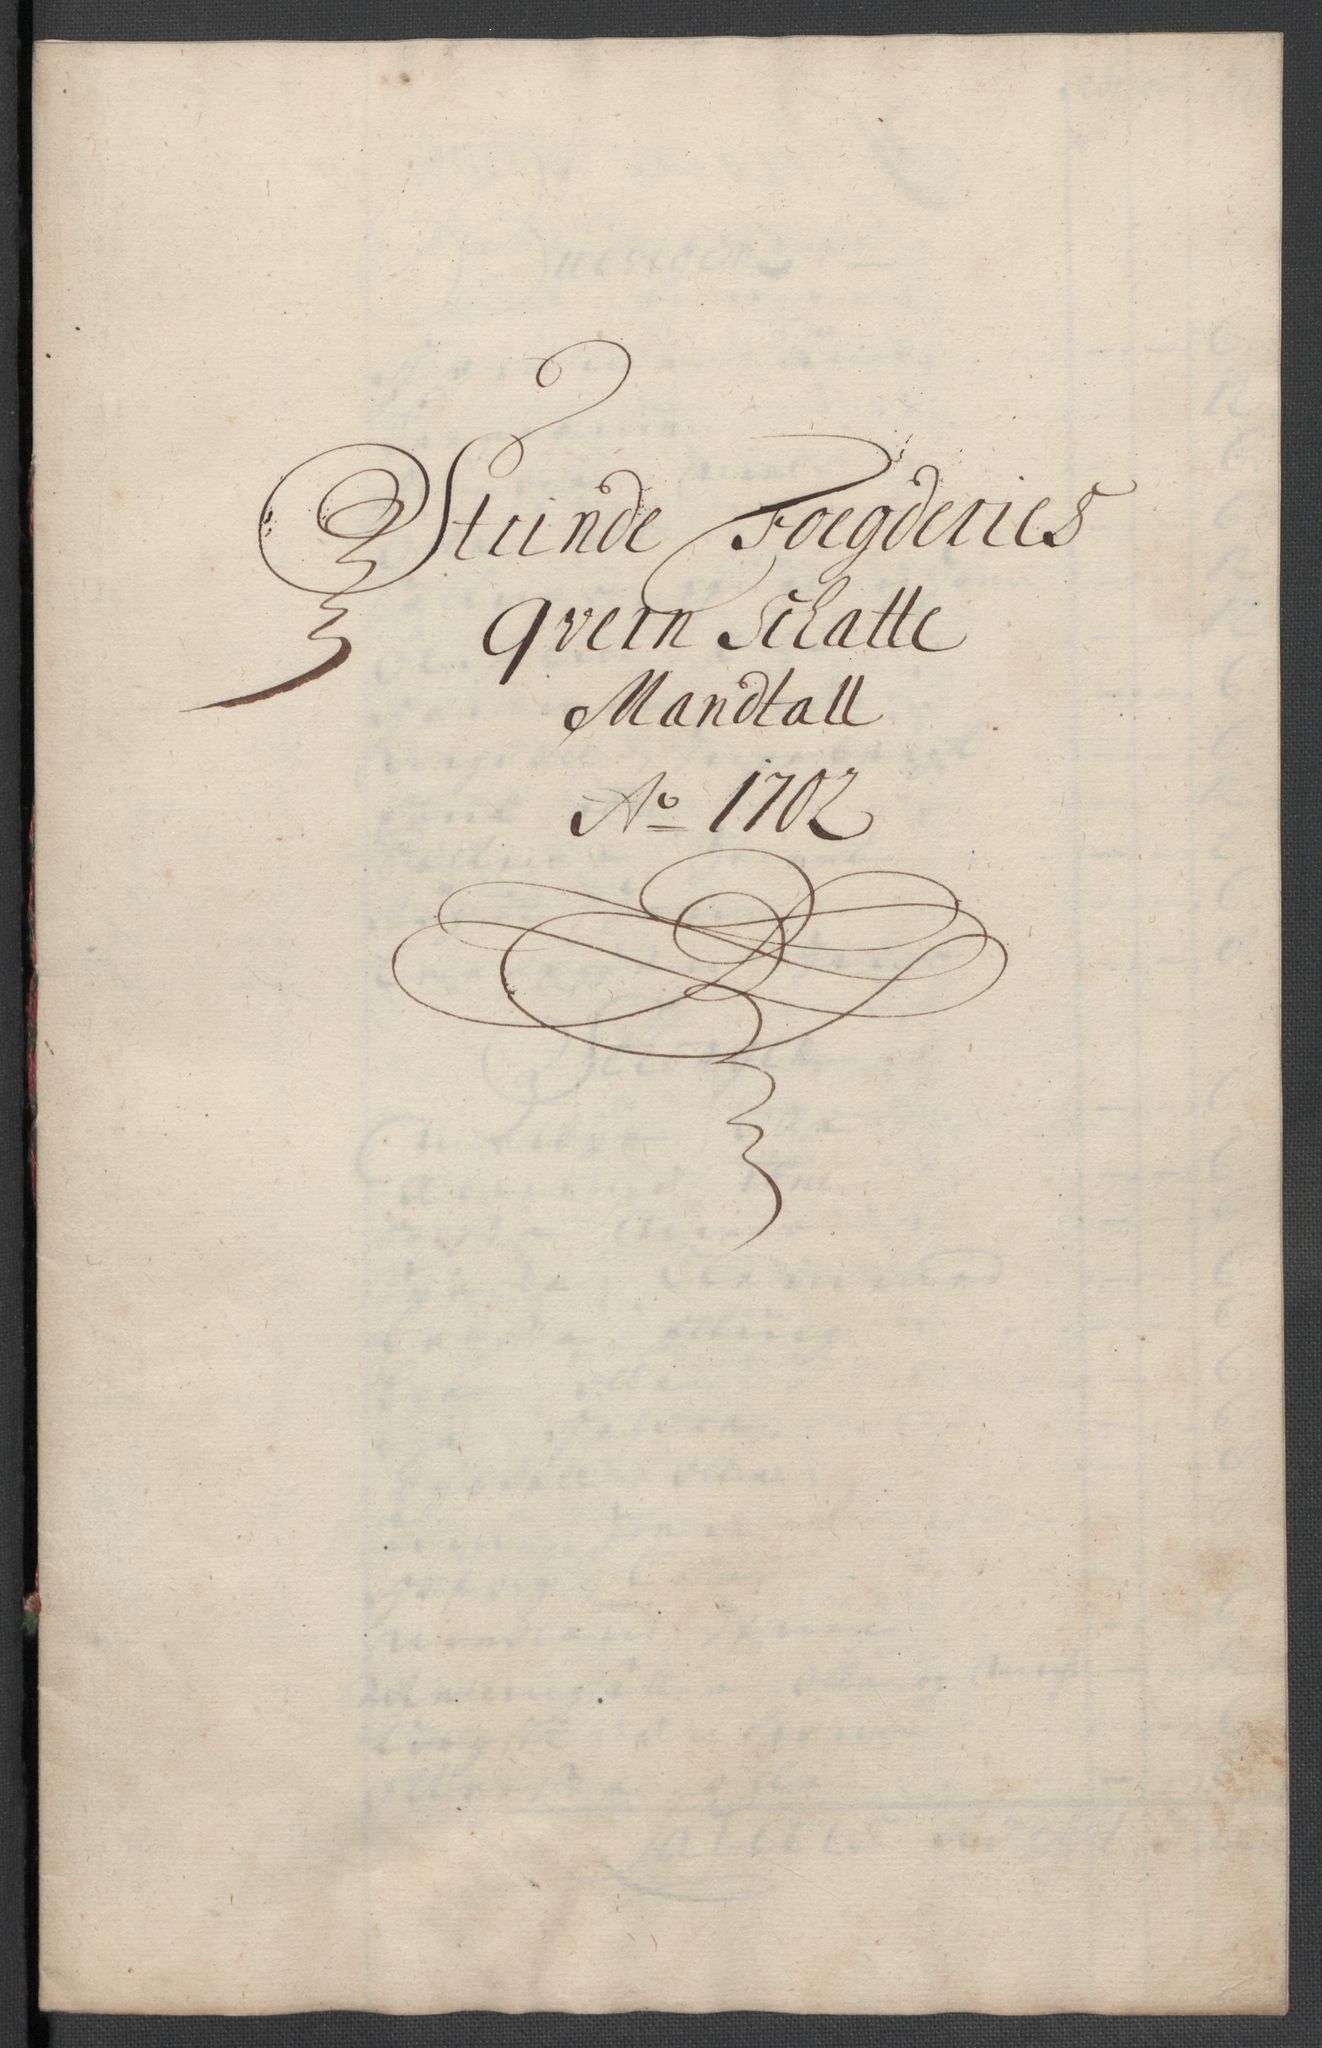 Strinde Foegderies
qvern Schatte
Mandtall
Ao 1702